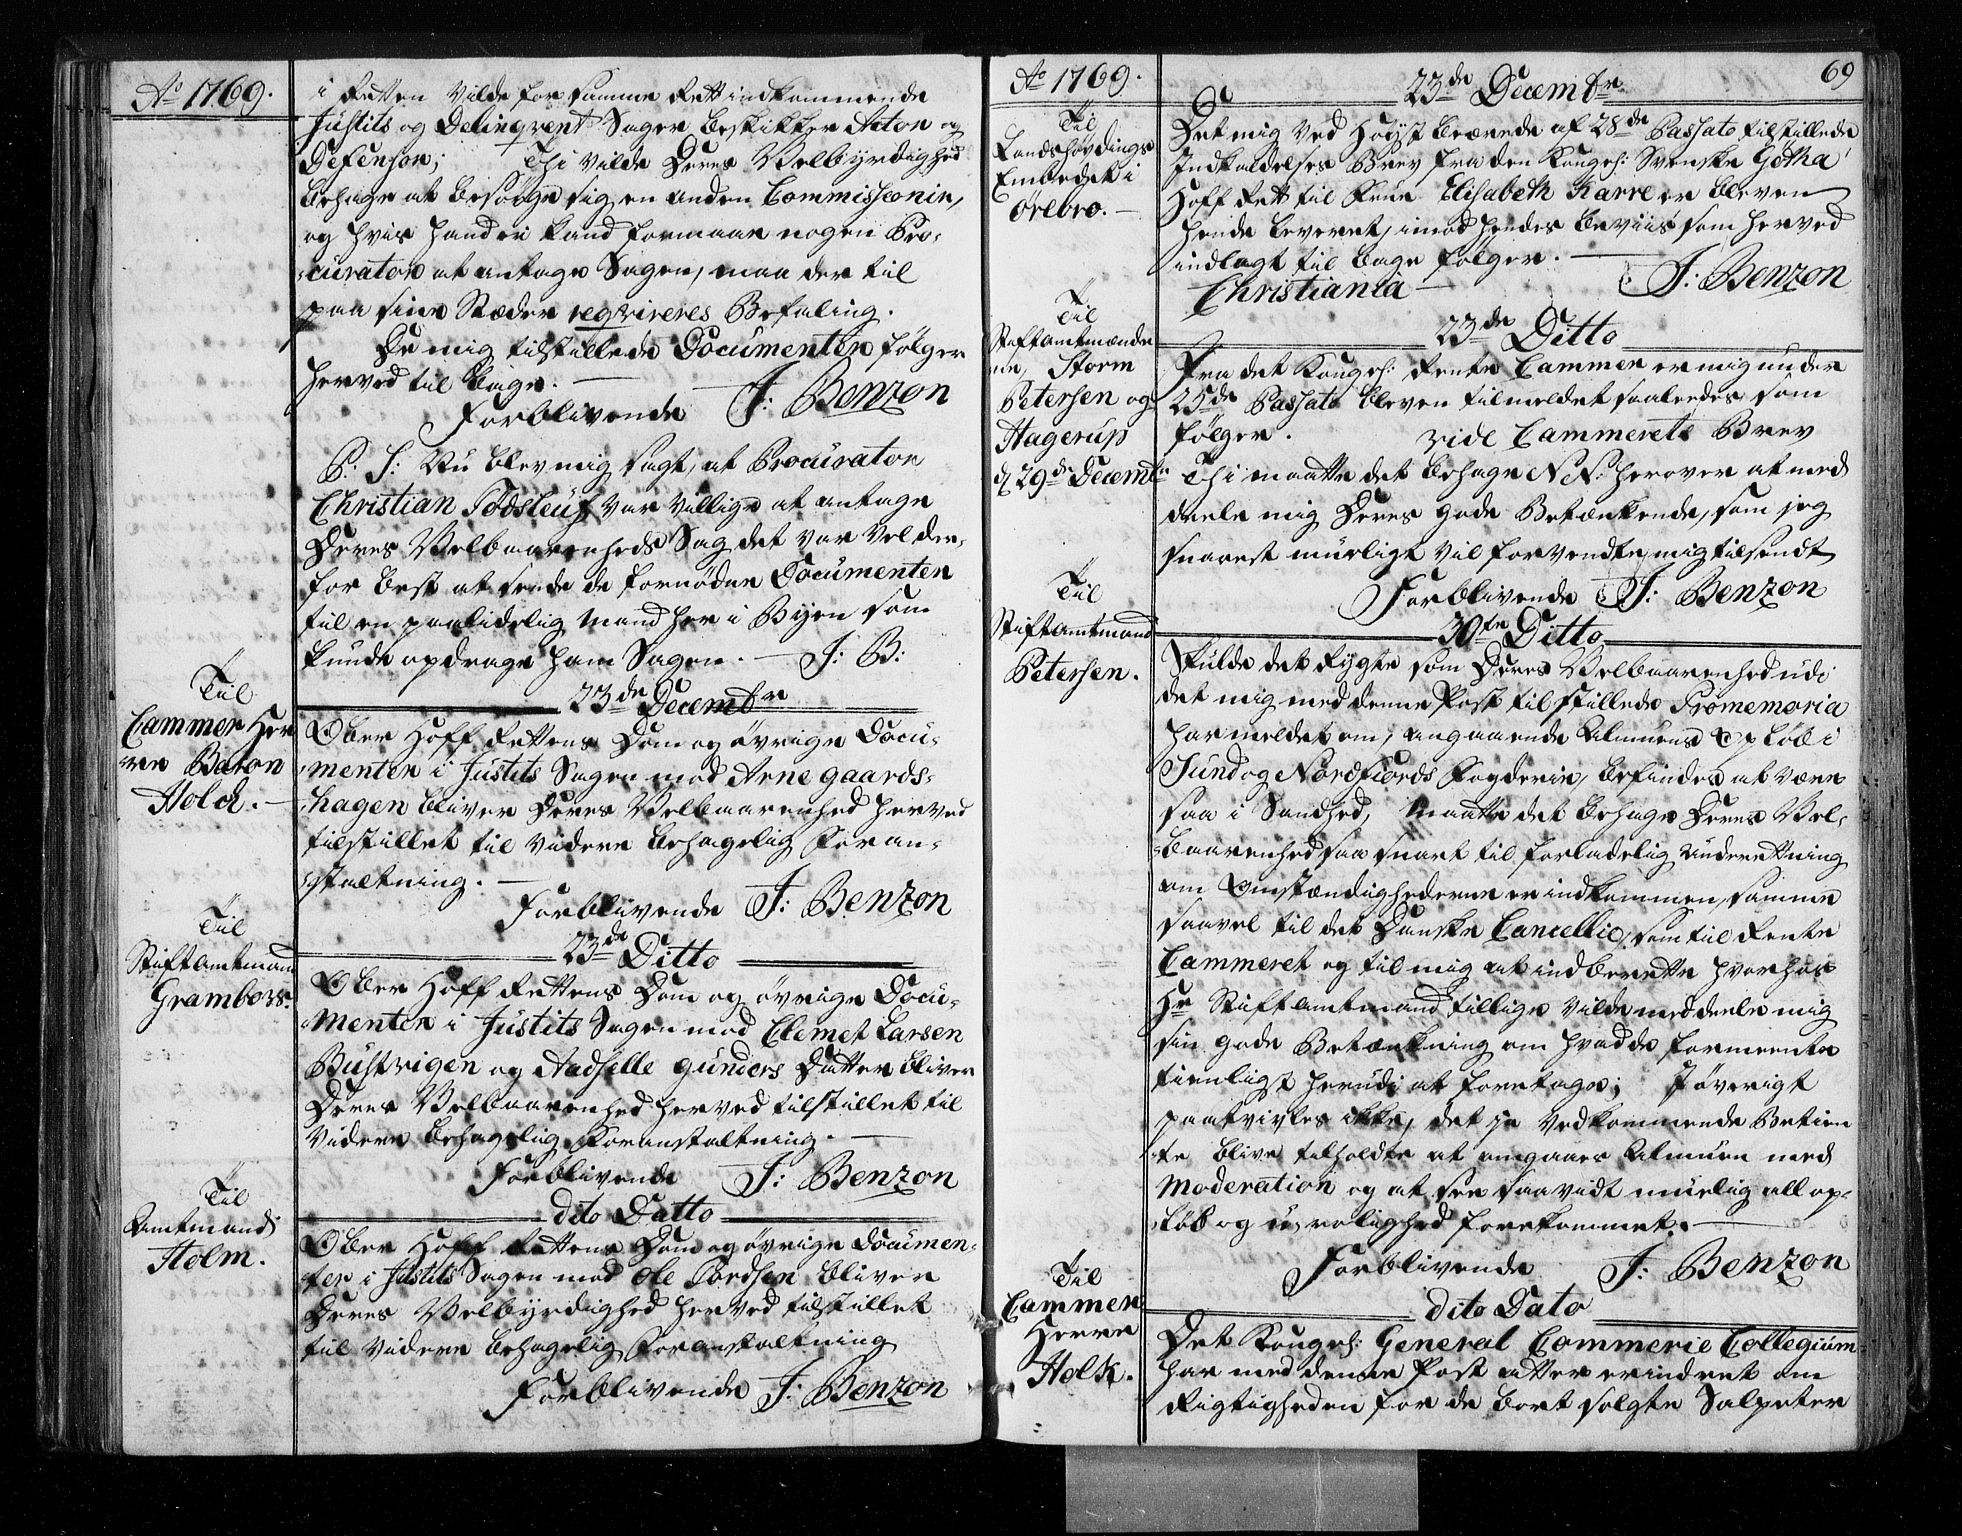 Ao 1769.
i Retten vilde for samme Rett indkommende
Justits og Delinqvent Sager beskikker Actor og
Defensor; Thi vilde Deres Velbyrdighed
behage at besørge sig en anden Commissionair,
og hvis hand ei kand formaae nogen Pro-
curator at antage Sagen, maa der til
paa sine Stæder reqvireres Befaling.
De mig tilstillede Documenter følger
herved til bage.
Forblivende J: Benzon
P: S: Nu blev mig sagt, at Procurator
Christian Todsleuf var villig at antage
Deres Velbaarenheds Sag det var vel der-
for best at sende de fornødne Documenter
til en paalidelig Mand her i Byen som
kunde opdrage ham Sagen. J: B:
Til
Cammer Her
ren Baron
Holck.
23de Decembr
Ober Hoff Rettens Dom og øvrige Docu-
menter i Justits Sagen mod Arne Gaards-
hagen bliver Deres Velbaarenhed herved
tilstillet til videre behagelig Foran-
staltning.
Forblivende J: Benzon
Til
Stiftamtmand
Grambow.
23de Ditto
Ober Hoff Rettens Dom og øvrige Docu-
menter i Justits Sagen mod Clemet Larsen
Bustvigen og Aadselle Gunders Datter bliver
Deres Velbaarenhed herved tilstillet til
videre behagelig Foranstaltning.
Forblivende J: Benzon
Til
Amtmand
Holm.
dito Datto
Ober Hoff Rettens Dom og øvrige Documen-
ter i Justits Sagen mod Ole Tordsen bliver
Deres Velbyrdighed herved tilstillet
til videre behagelig Foranstaltning
Forblivende J: Benzon
Ao 1769.
69
Til
Landshøvdings
Embedet i
Orebro.
23de Decembr
Det mig ved Høyst beærede af 28de Passato tilstillede
Indkaldelses Brev fra den Kongel: Svenske Gotha
Hoff Rett til Frue Elisabeth Karre er bleven
hende leveret, imod hendes beviis som herved
indlagt til bage følger.
Christiania J: Benzon
Til
Stiftamtmænde
ne, Storm
Petersen og
Hagerup
d 29de Decembr
23de Ditto
Fra det Kongel: Rente Cammer er mig under
25de Passato bleven tilmeldet saaledes som
følger. vide Cammerets Brev
Thi maatte det behage N N: herover at med
deele mig Deres gode Betænkende, som jeg
snarest muligt vil forvendte mig tilsendt
Forblivende J: Benzon
Til
Stiftamtmand
Petersen.
30te Ditto
Skulde det Rygte som Deres Velbaarenhed udi
det mig med denne Post tilstillede Promemoria
har meldet om, angaaende Almuens Opløb i
Sund og Nordfiords Fogderie, befindes at være
saa i Sandhed, maatte det behage Deres Vel-
baarenhed saa snart til forladelig Underettning
om Omstændighederne er indkommen, samme
saavel til det Danske Cancellie, som til Rente
Cammeret og til mig at indberette hvorhos
Hr Stiftamtmand tillige vilde meddeele mig
sin gode Betænkning om hvad de formeente
tienligt herudi at foretage; I øvrigt
paatvivles ikke, det jo vedkommende Betien
te blive tilholdte at omgaaes Almuen med
Moderation og at see saavidt muelig all op-
løb og u-rolighed forekommet.
Forblivende J: Benzon
Til
Cammer
Herre
Holk.
dito Dato
Det Kongel: General Commerie Collegium
har med denne Post atter erindret om
Rigtigheden for de bort solgte Salpeter